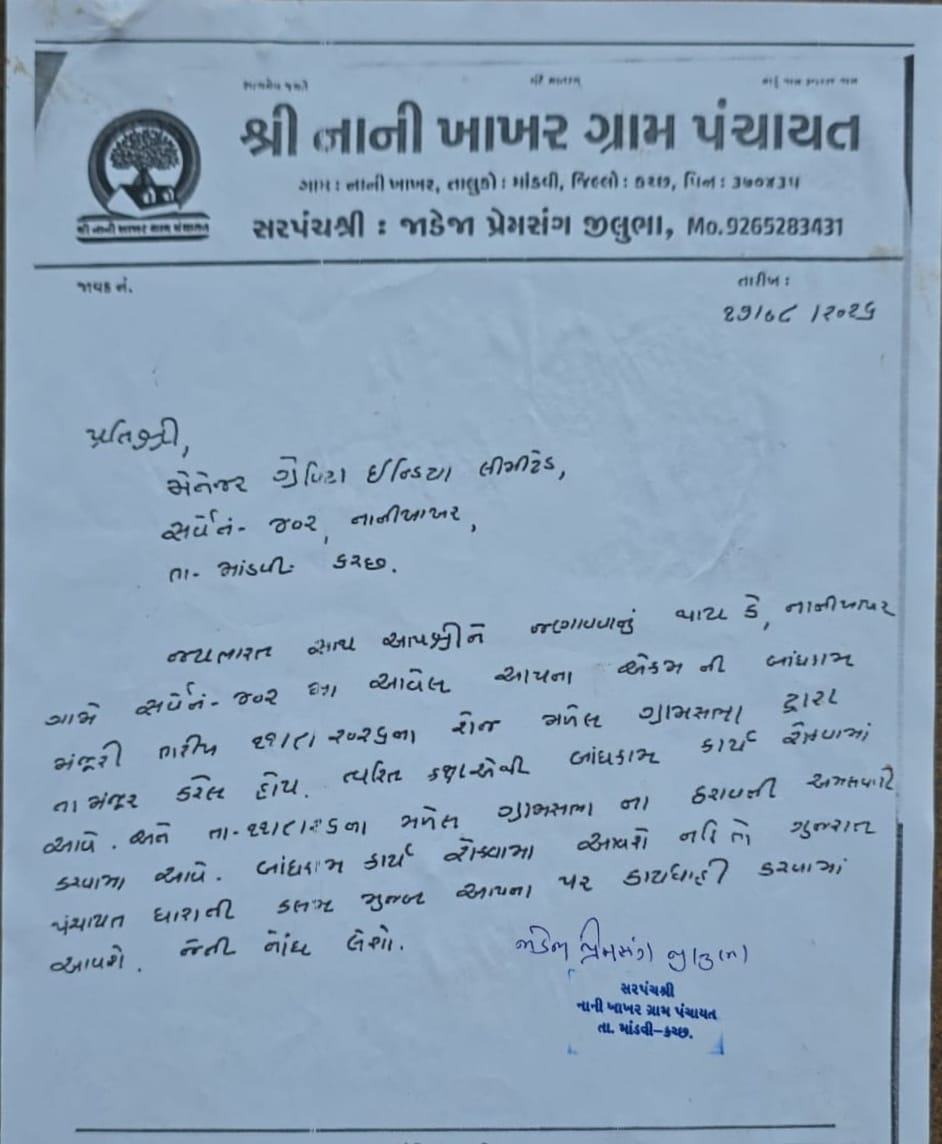 વંદે માતરમ્
શ્રી નાની ખાખર ગ્રામ પંચાયત
ગામ : નાની ખાખર, તાલુકો : માંડવી, જિલ્લો : કચ્છ, પિન : ૩૭૦૪૩૫
સરપંચશ્રી : જાડેજા પ્રેમસંગ જીલુભા, Mo.9265283431
શ્રી નાની ખાખર ગ્રામ પંચાયત
જાવક નં.
તારીખ :
૨૭/૦૮ /૨૦૨૬
પ્રતિશ્રી,
મેનેજર ગ્રેવિટા ઈન્ડિયા લીમીટેડ,
સર્વેનં- ૪૦૨, નાનીખાખર,
તા- માંડવી- કચ્છ.
જયભારત સાથ આપશ્રીને જણાવવાનું થાય કે, નાનીખાખર
ગામે સર્વેનં- ૪૦૨ માં આવેલ આપના એકમ ની બાંધકામ
મંજૂરી તારીખ ના રોજ મળેલ ગ્રામસભા દ્વારા
નામંજૂર કરેલ હોય. ત્વરિત બાંધકામ કાર્ય રોકવામાં
આવે. અને તા- ના મળેલ ગ્રામસભા ના ઠરાવની અમલવારી
કરવામા આવે. બાંધકામ કાર્ય રોકવામા આવશે નહિ તો ગુજરાત
પંચાયત ધારાની કલમ મુજબ આપના પર કાર્યવાહી કરવામાં
આવશે. જેની નોંધ લેશો.
જાડેજા પ્રેમસંગ જીલુભા
સરપંચશ્રી
નાની ખાખર ગ્રામ પંચાયત
તા. માંડવી-કચ્છ.